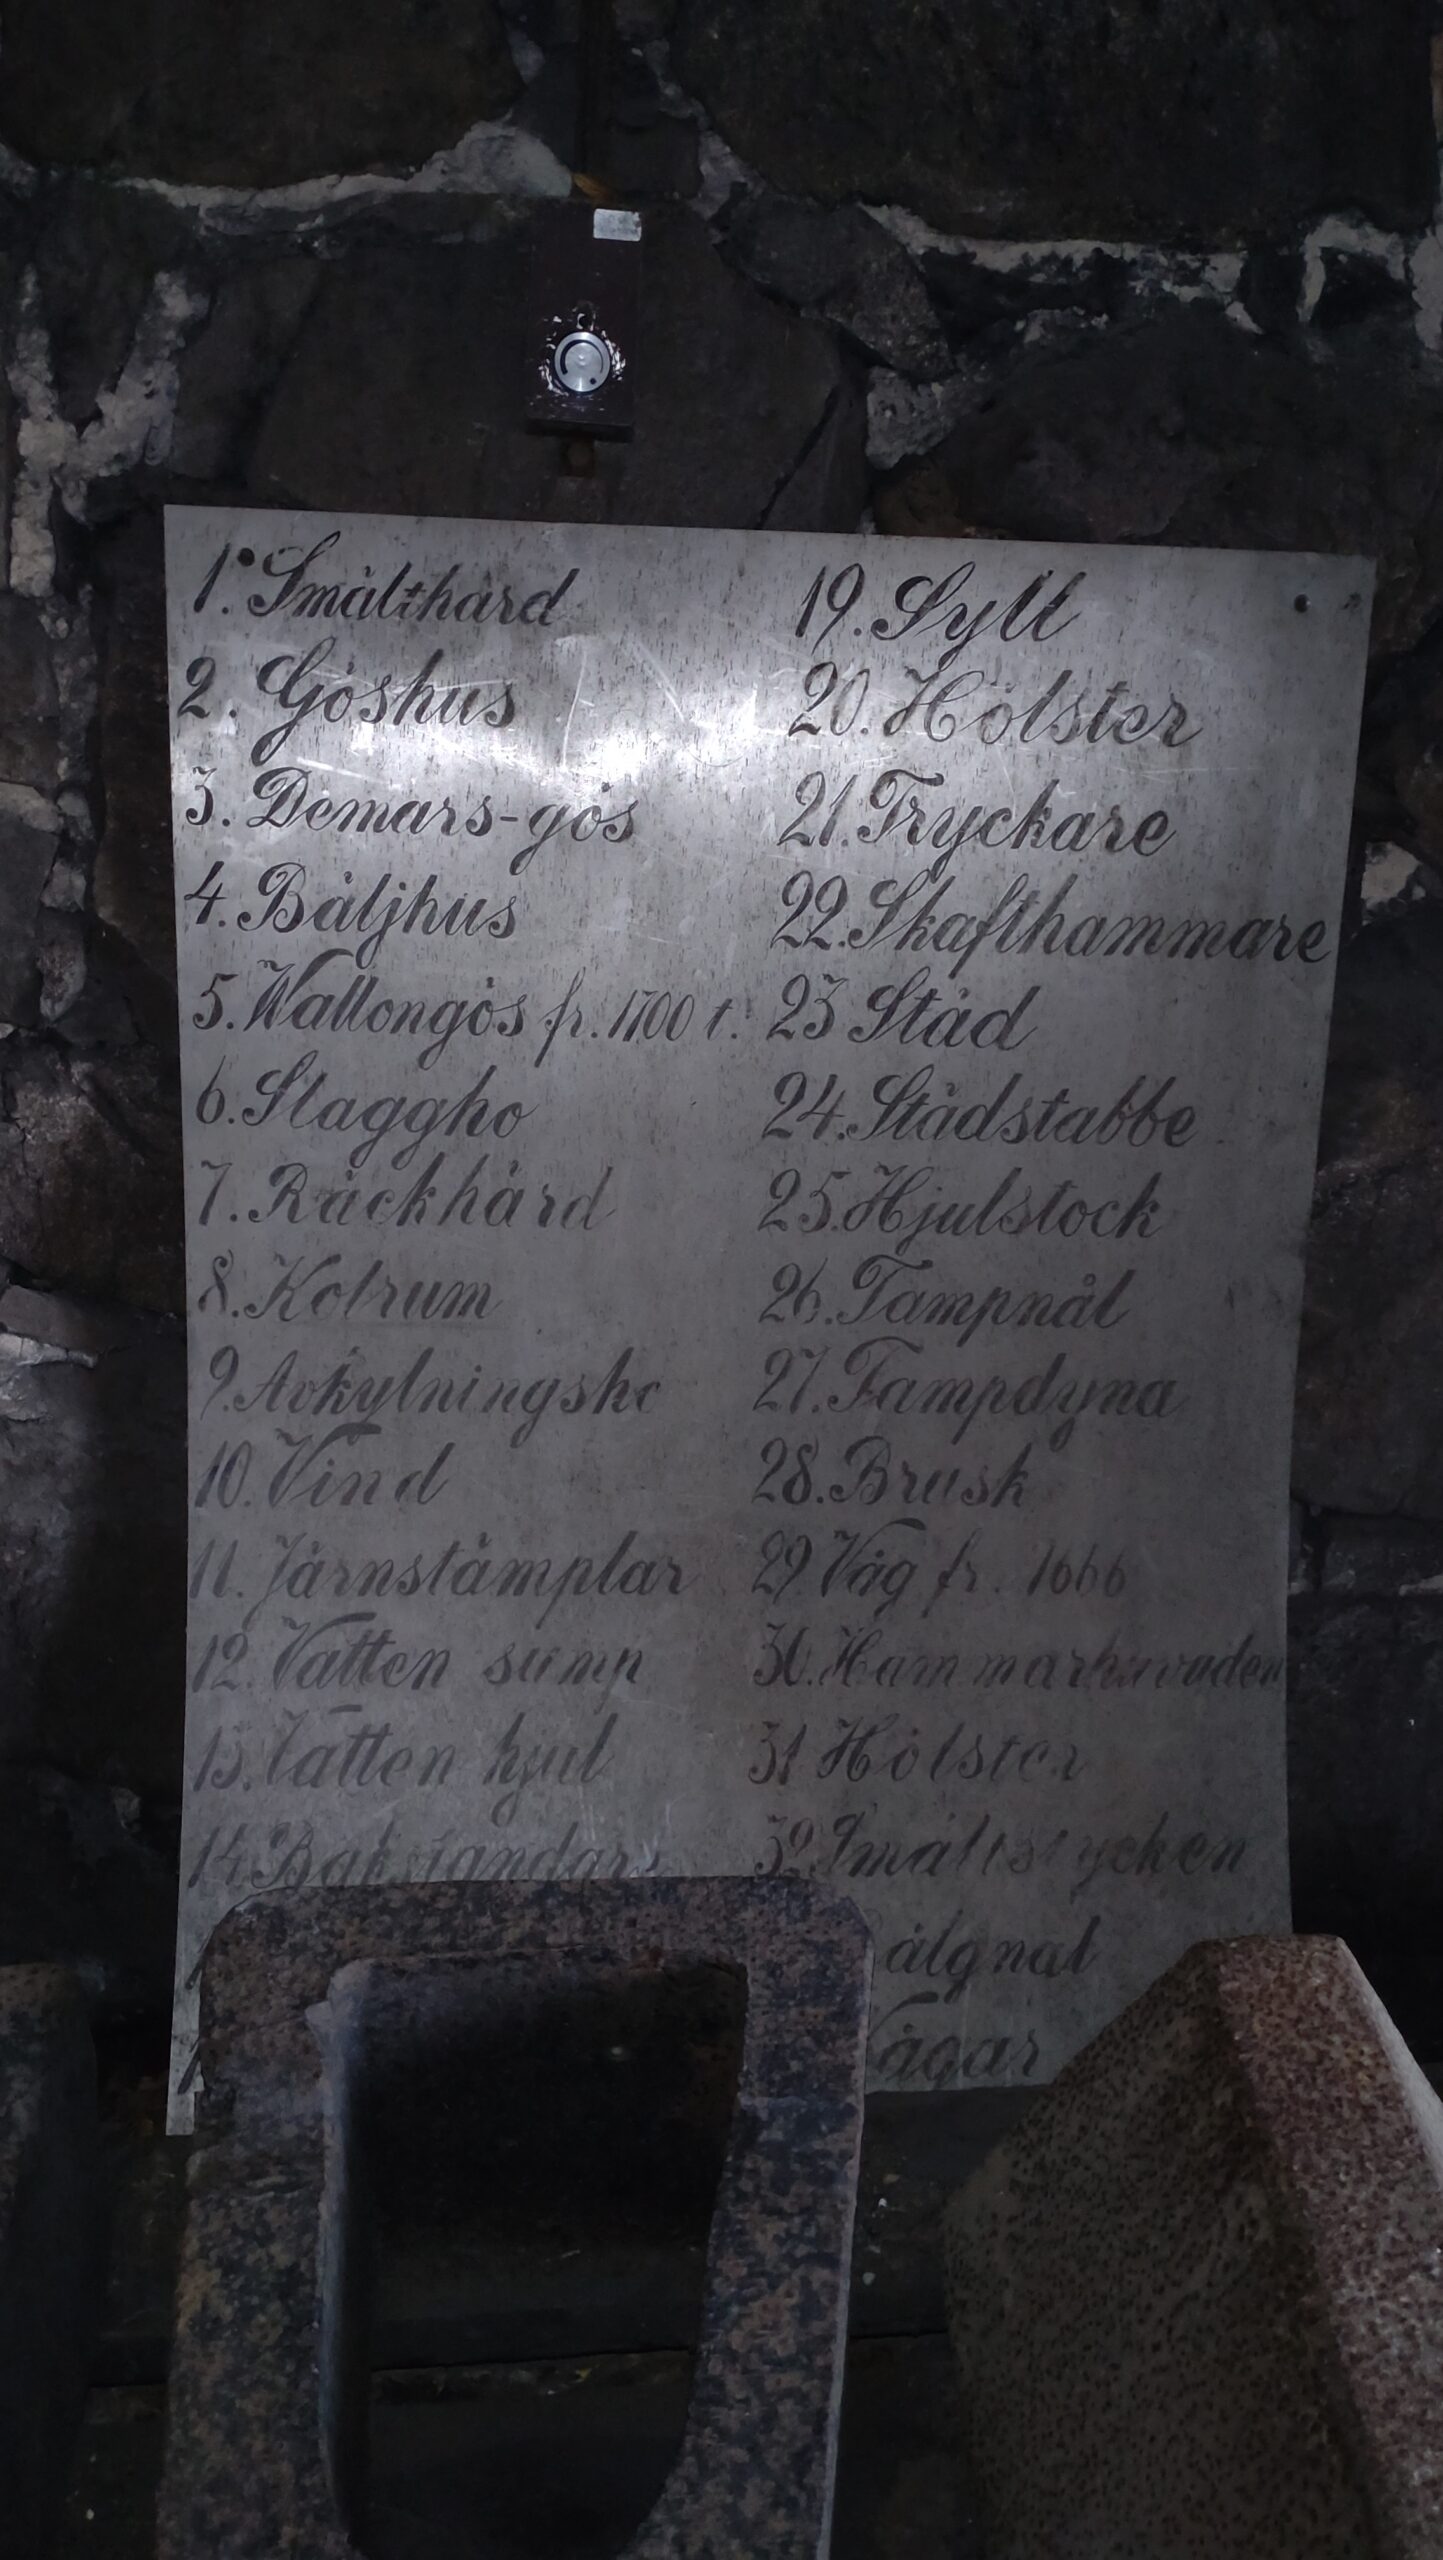 1. Smälthärd
2. Göshus
3. Demars-gös
4. Bäljhus
5. Wallongös fr. 1700 t.
6. Slaggho
7. Räckhärd
8. Kolrum
9. Avkylningsho
10. Vind
11. Järnstämplar
12. Vatten sump
13. Vatten hjul
14.
19. Syll
20. Hölster
21. Tryckare
22. Skafthammare
23 Städ
24. Städstabbe
25. Hjulstock
26. Tampnål
27. Tampdyna
28. Brusk
29. Våg fr. 1666
30. Hammarhuvuden
31 Hölster
32. Smältstycken
ålgnal
Vågar